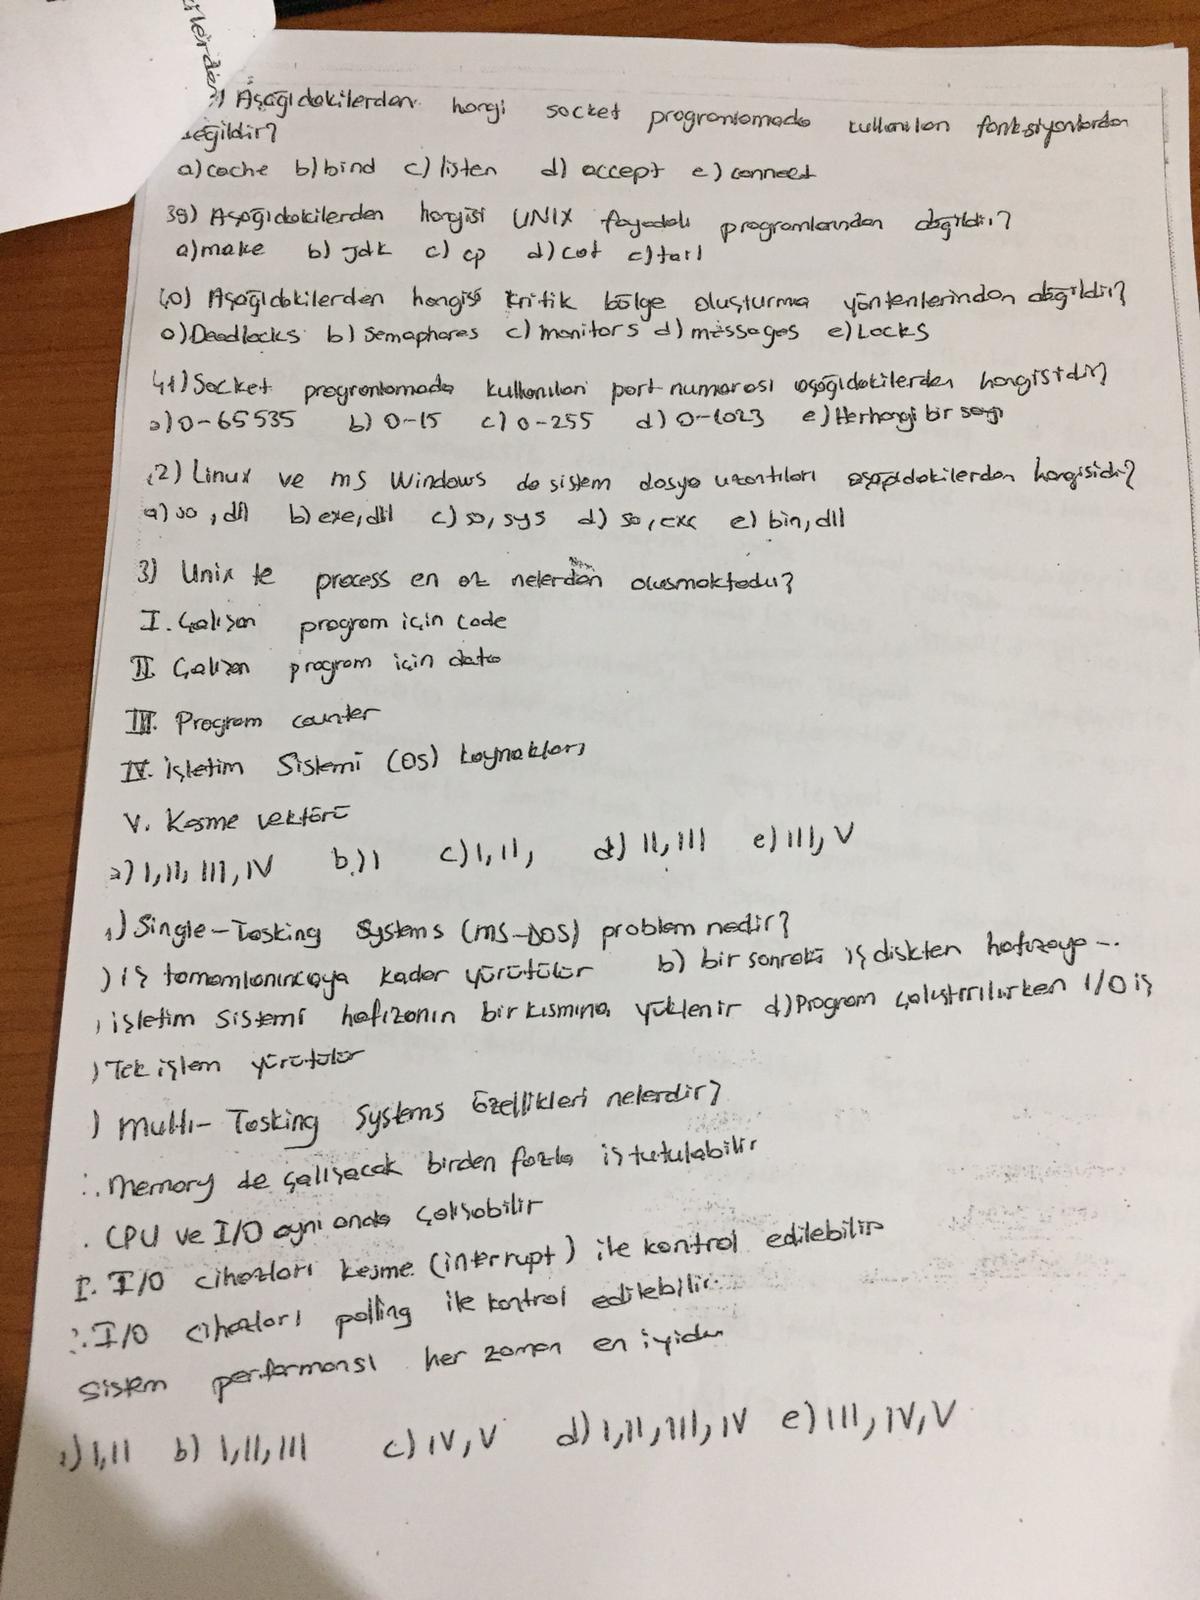 erlerden
) Aşağıdakilerden hangi socket programlamada kullanılan fonksiyonlardan
değildir?
a) cache b) bind c) listen d) accept e) connect
39) Aşağıdakilerden hangisi UNIX faydalı programlarından değildir?
a) make b) jdk c) cp d) cat e) tail
40) Aşağıdakilerden hangisi kritik bölge oluşturma yöntenlerinden değildir?
a) Deadlocks b) Semaphores c) monitors d) messages e) Locks
41) Socket programlamada kullanılan port numarası aşağıdakilerden hangisidir?
a) 0-65535 b) 0-15 c) 0-255 d) 0-1023 e) Herhangi bir sayı
2) Linux ve ms Windows da sistem dosya uzantıları aşağıdakilerden hangisidir?
a) so, dll b) exe, dll c) so, sys d) so, exe e) bin, dll
3) Unix te process en az nelerden oluşmaktadır?
I. Çalışan program için code
II. Çalışan program için data
III. Program counter
IV. İşletim Sistemi (OS) kaynakları
V. Kesme vektörü
a) I, II, III, IV b) I c) I, II, d) II, III e) III, V
) Single-Tasking Systems (MS-DOS) problem nedir?
) iş tamamlanıncaya kadar yürütülür b) bir sonraki iş diskten hafızaya -..
) işletim sistemi hafızanın bir kısmına yüklenir d) Program çalıştırılırken I/O iş
) Tek işlem yürütülür
) Multi-Tasking Systems Özellikleri nelerdir?
. Memory de çalışacak birden fazla iş tutulabilir
. CPU ve I/O aynı anda çalışabilir
I. I/O cihazları kesme (interrupt) ile kontrol edilebilir
. I/O cihazları polling ile kontrol edilebilir.
Sistem performansı her zaman en iyidir
a) I, II b) I, II, III c) IV, V d) I, II, III, IV e) III, IV, V